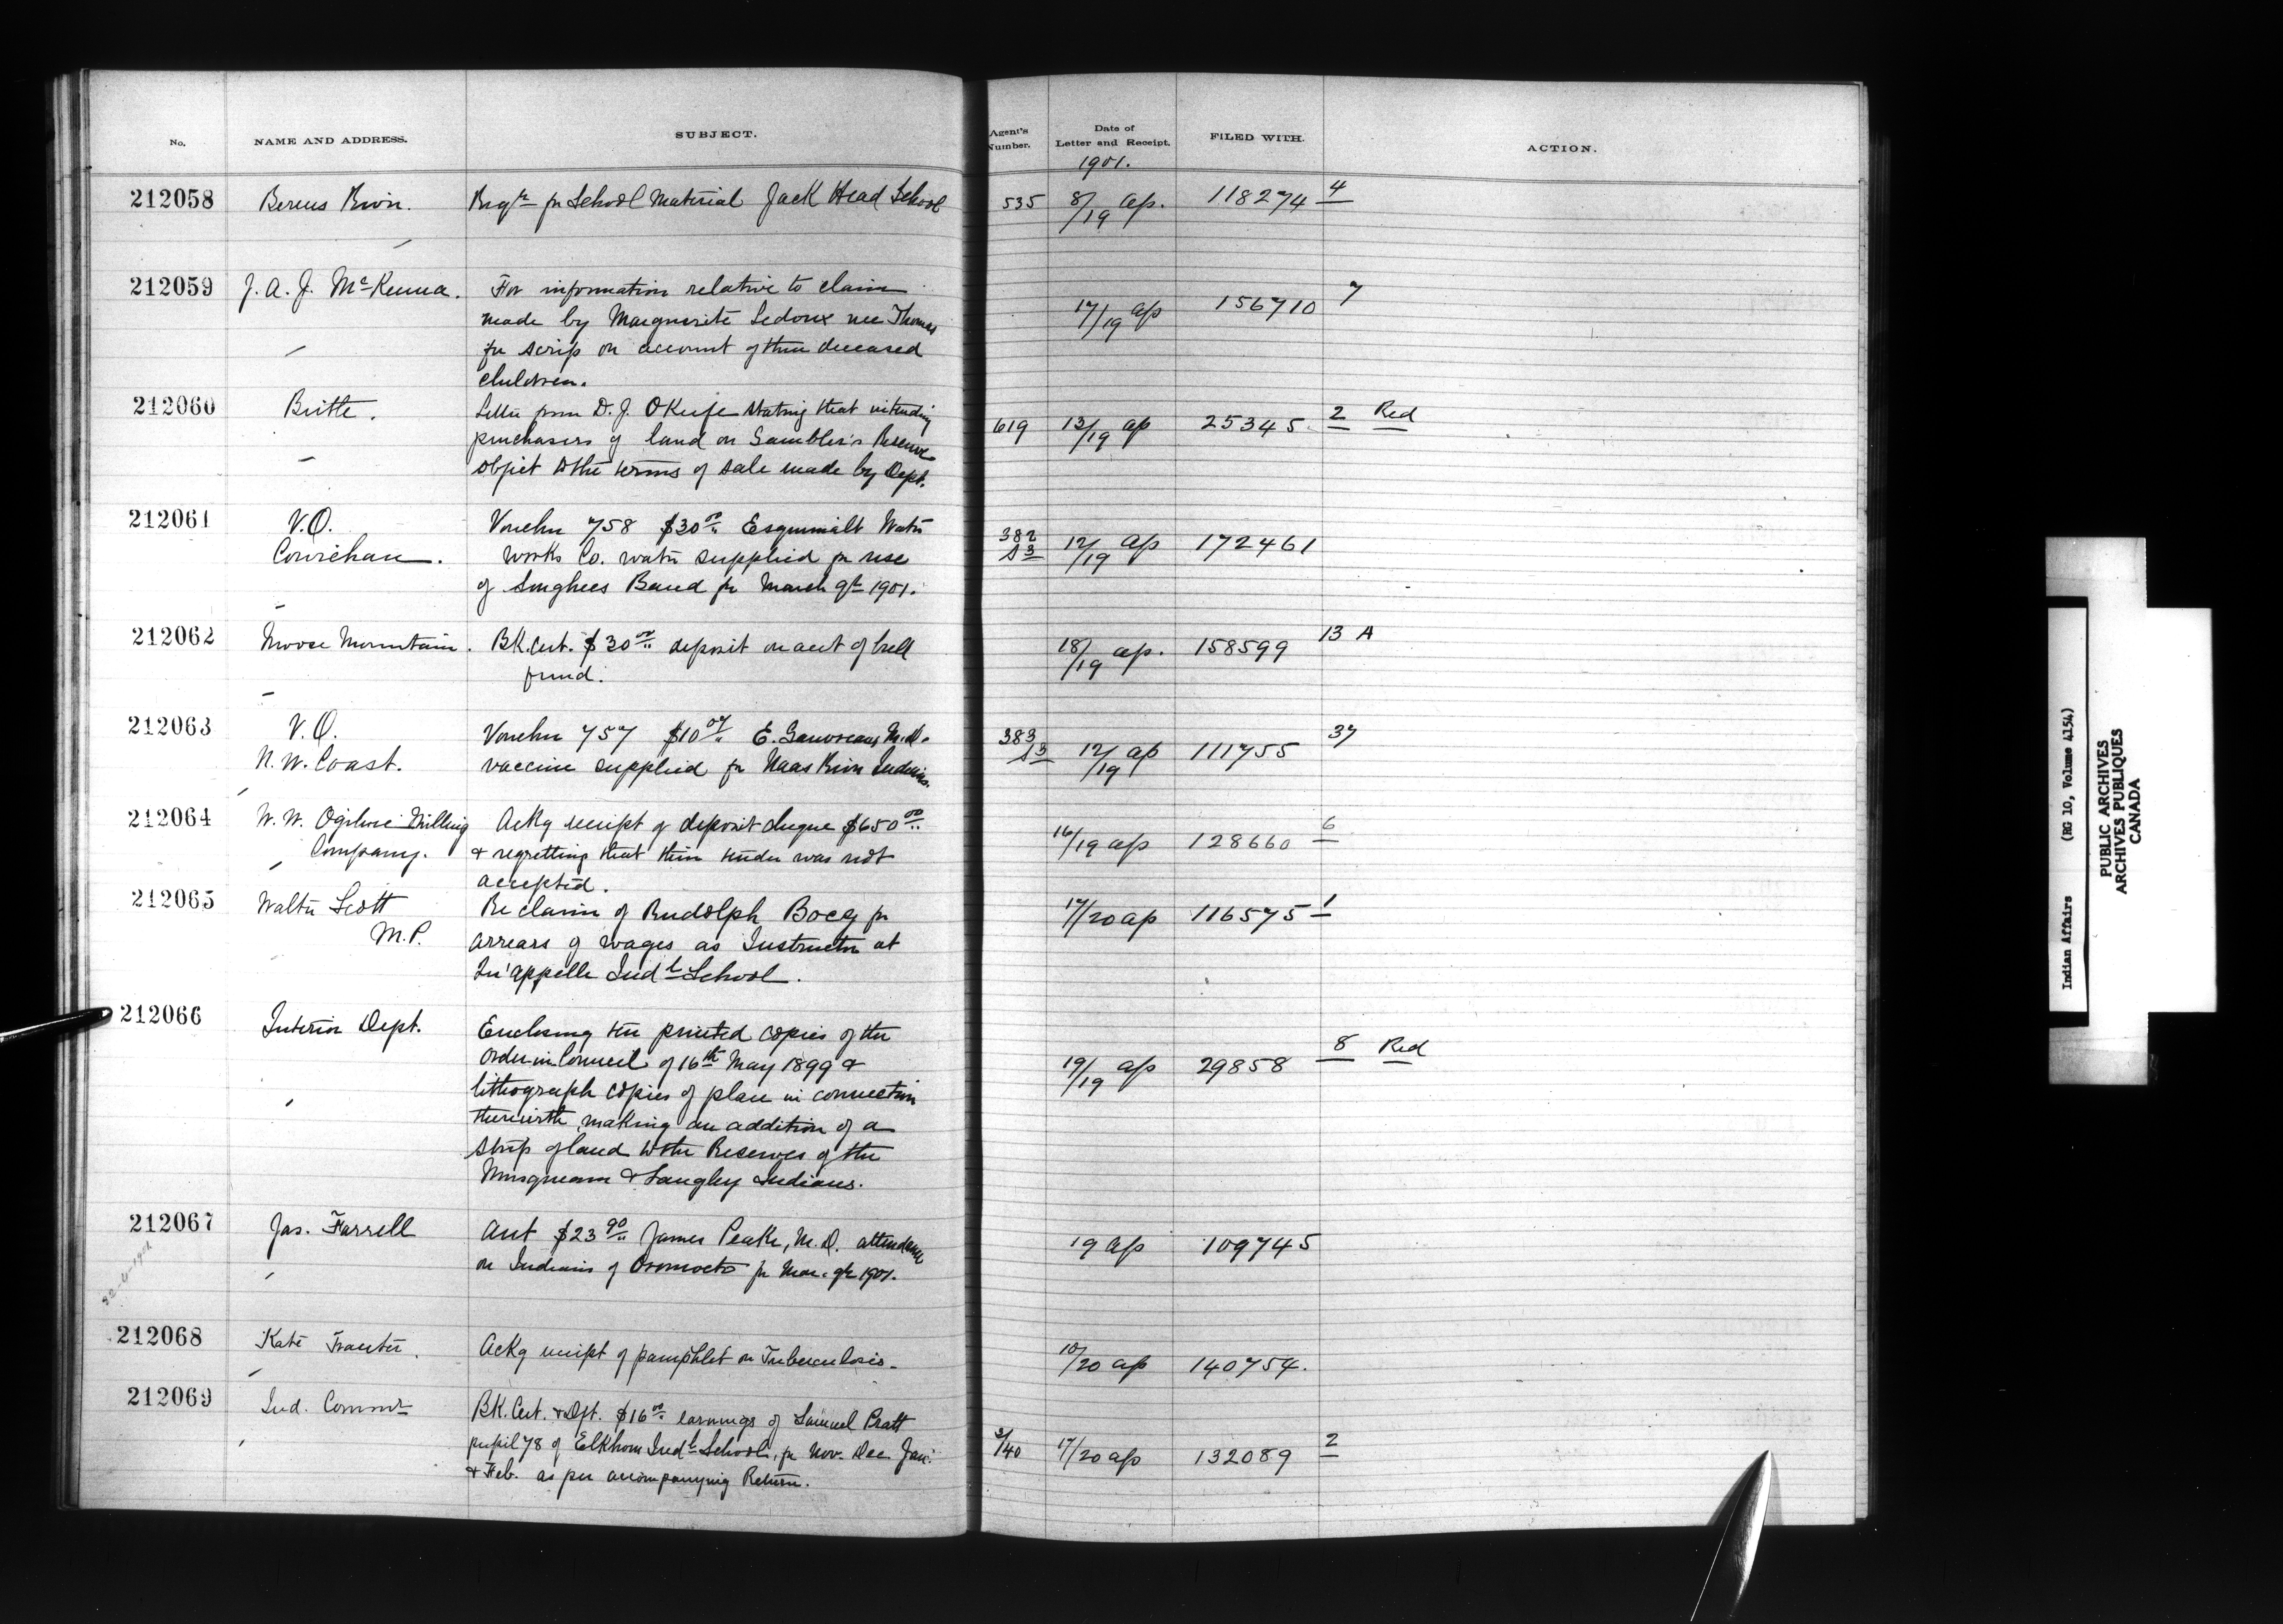 No. NAME AND ADDRESS. SUBJECT. Agent's Number. Date of Letter and Receipt. FILED WITH. ACTION.
1901.
212058 Berens River. Reqn for School Material Jack Head School 535 8/19 Ap. 118274 4
212059 J. A. J. McKenna. For information relative to claim 17/19 Ap 156710 7
made by Marguerite Ledoux nee Thomas
for scrip on account of their deceased
children.
212060 Birtle. Letter from D. J. OKeefe stating that intending 619 13/19 Ap 25345 2 Red
purchasers of land on Gambler's Reserve
object to the terms of sale made by Dept.
212061 V.O. Voucher 758 $30 00 Esquimalt Water 382 S3 12/19 Ap 172461
Cowichan. works Co. water supplied for use
of Songhees Band for March qr 1901.
212062 Moose Mountain. BK. Cert. $30 00 deposit on acct of bull 18/19 Ap. 158599 13 A
fund.
212063 V.O. Voucher 757 $10 07 E. Gauvreau, M.D. 383 S3 12/19 Ap 111755 37
N. W. Coast. vaccine supplied for Naas River Indians.
212064 W. W. Ogilvie Milling Ackg receipt of deposit cheque $650 00 16/19 Ap 128660 6
Company. & regretting that their tender was not
accepted.
212065 Walter Scott Re claim of Rudolph Bocq for 17/20 Ap 116575 1
M.P. arrears of wages as Instructor at
Qu'appelle Indl School.
212066 Interior Dept. Enclosing ten printed copies of the 19/19 Ap 29858 8 Red
Order in Council of 16th May 1899 &
lithograph copies of plan in connection
therewith, making an addition of a
strip of land to the Reserves of the
Musqueam & Langley Indians.
212067 Jas. Farrell Acct $23 90 James Peake, M.D. attendance 19 Ap 109745
on Indians of Oromocto for Mar. qr 1901.
212068 Kate Ackg receipt of pamphlet on Tuberculosis. 18/20 Ap 140754.
212069 Ind. Commr BK. Cert. & Dft. $16 00 earnings of Samuel Pratt 3/40 17/20 Ap 132089 2
pupil 78 of Elkhorn Indl School, for Nov. Dec Jan.
& Feb. as per accompanying Return.
Indian Affairs (RG 10, Volume 4154)
PUBLIC ARCHIVES
ARCHIVES PUBLIQUES
CANADA